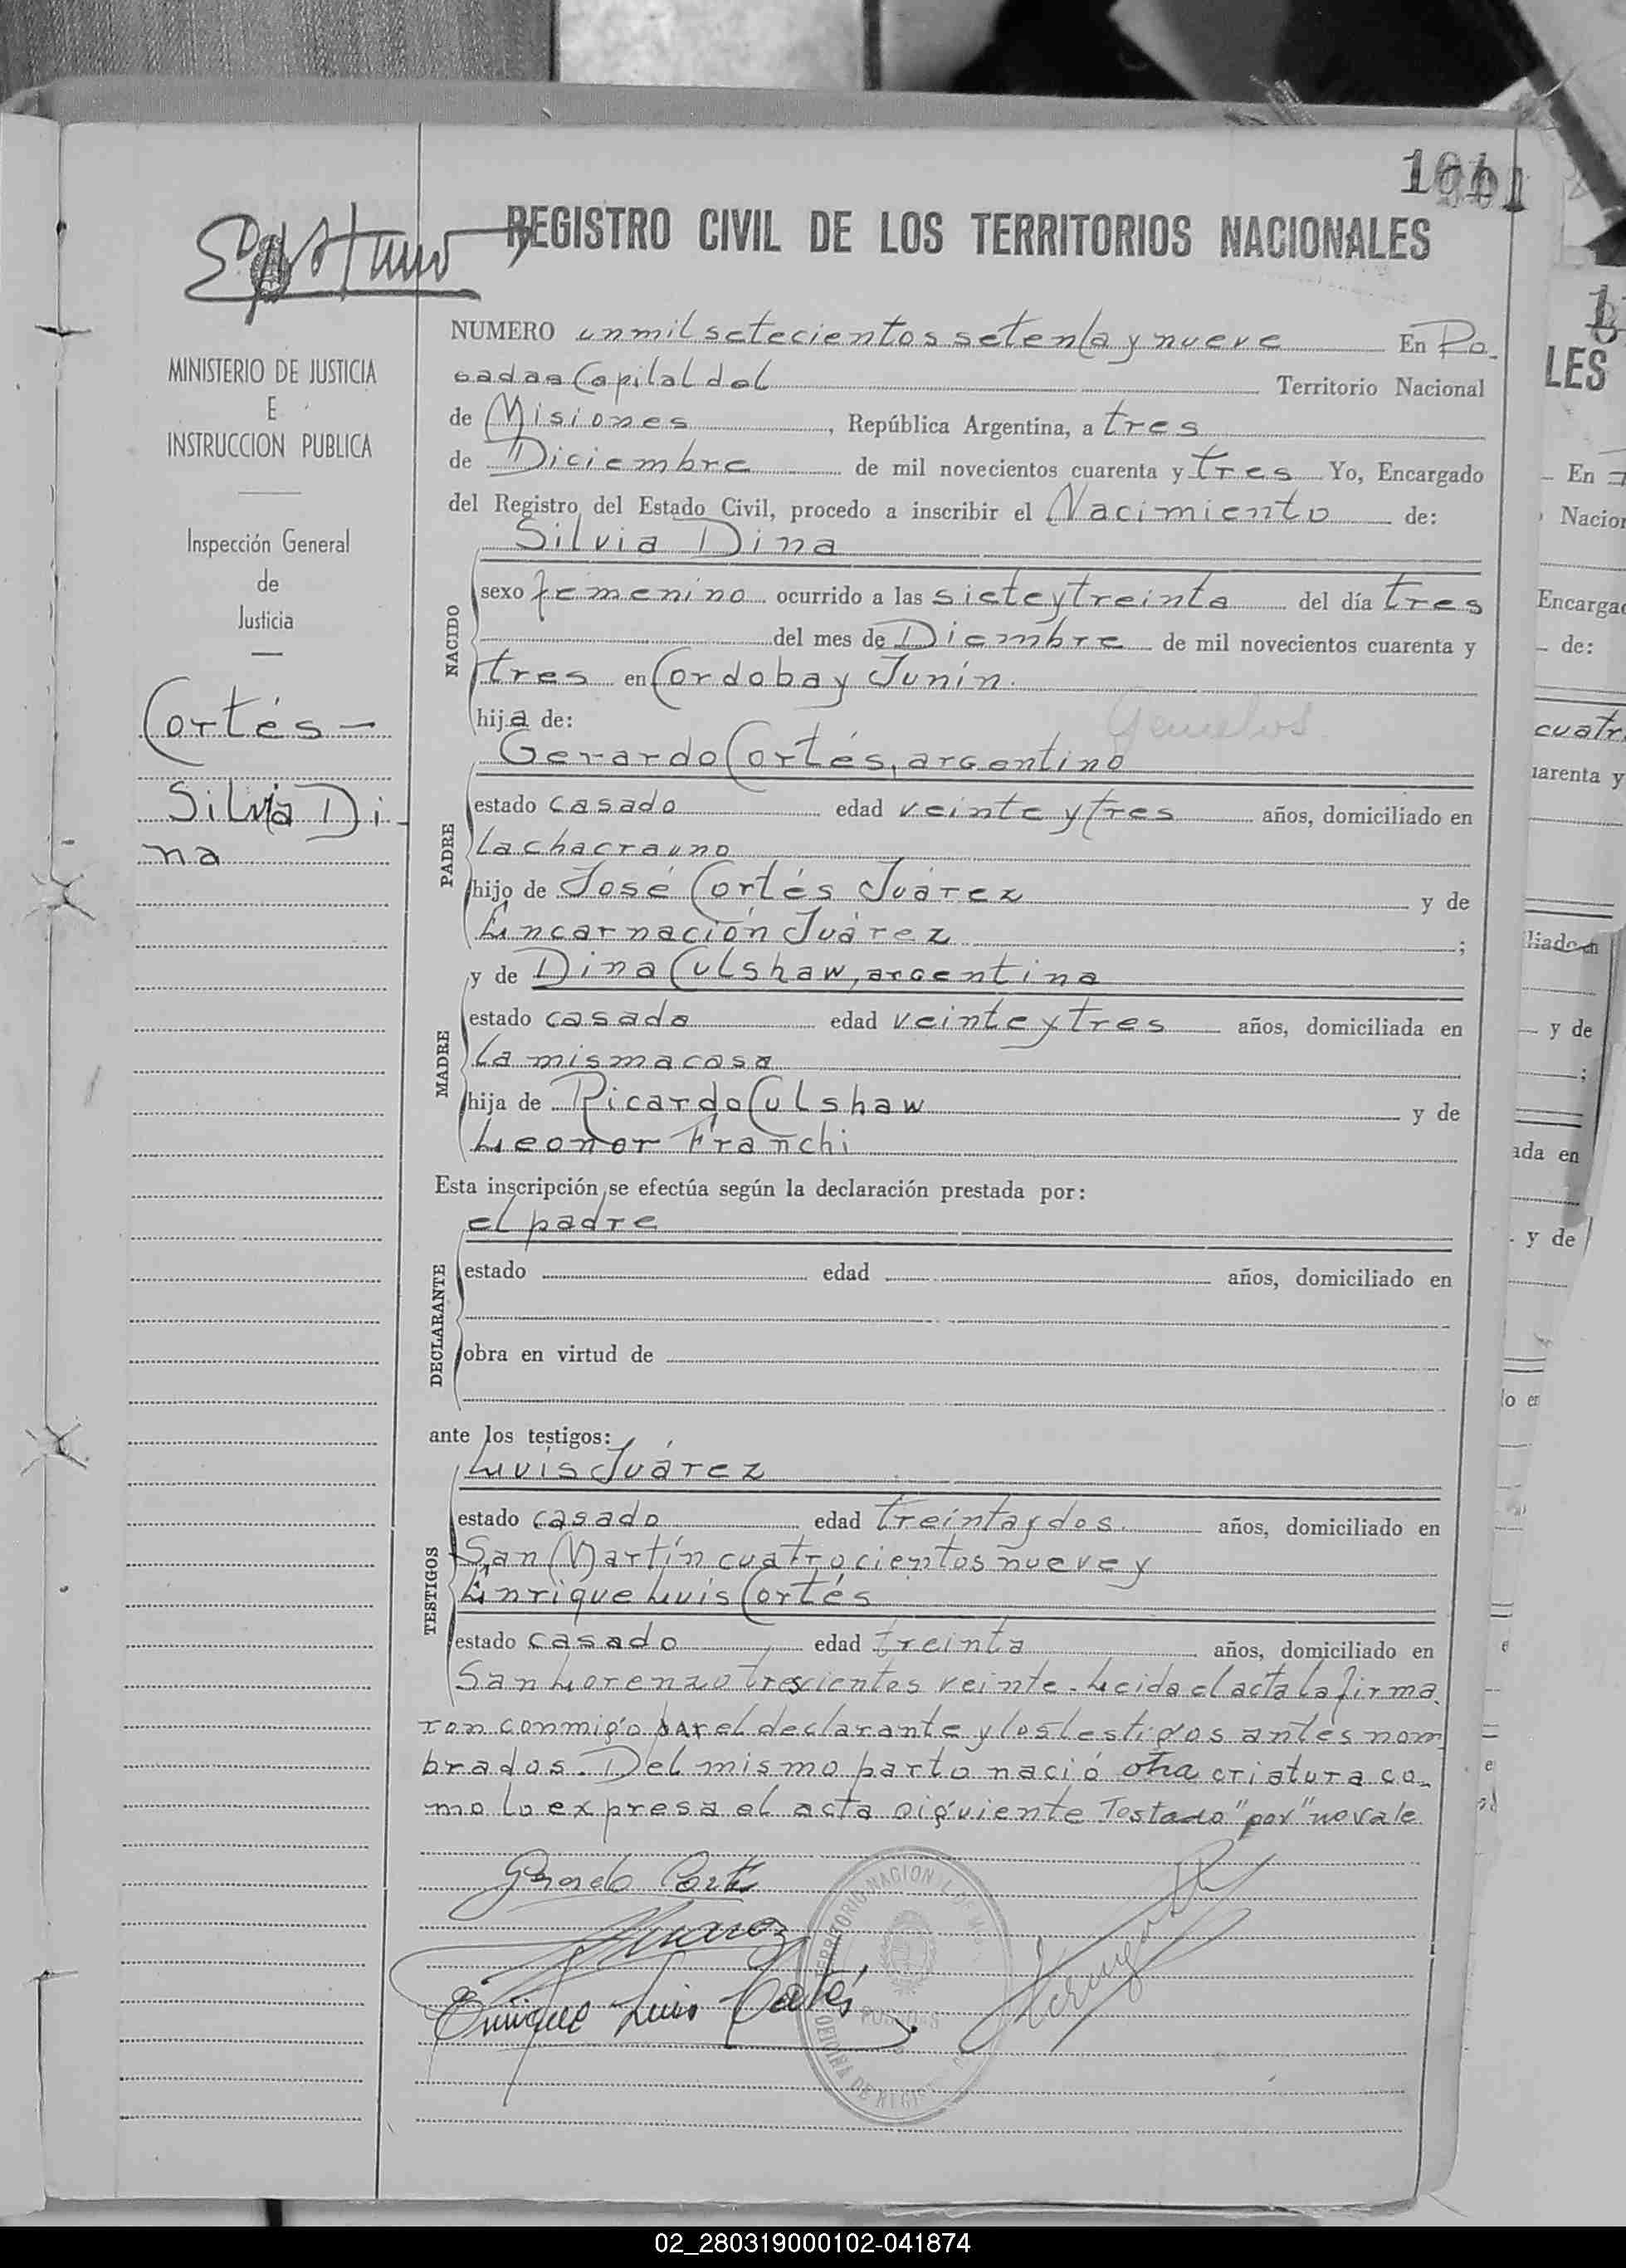 REGISTRO CIVIL DE LOS TERRITORIOS NACIONALES
MINISTERIO DE JUSTICIA
E
INSTRUCCION PUBLICA
Inspección General
de
Justicia
Cortés-
Silvia Di-
na
NUMERO un mil setecientos setenta y nueve En Po-
sadas Capital del Territorio Nacional
de Misiones, República Argentina, a tres
de Diciembre de mil novecientos cuarenta y tres Yo, Encargado
del Registro del Estado Civil, procedo a inscribir el Nacimiento de:
Silvia Dina
NACIDO
sexo femenino ocurrido a las siete y treinta del día tres
del mes de Diembre de mil novecientos cuarenta y
tres en Cordoba y Junín.
hija de:
Gemelos
Gerardo Cortés, argentino
PADRE
estado casado edad veinte y tres años, domiciliado en
la chacra uno
hijo de José Cortés Juárez y de
Encarnación Juárez ;
y de Dina Culshaw, argentina
MADRE
estado casada edad veinte y tres años, domiciliada en
la misma casa
hija de Ricardo Culshaw y de
Leonor Franchi
Esta inscripción se efectúa según la declaración prestada por:
el padre
DECLARANTE
estado edad años, domiciliado en
obra en virtud de
ante los testigos:
Luis Juárez
TESTIGOS
estado casado edad treinta y dos. años, domiciliado en
San Martín cuatrocientos nueve y
Enrique Luis Cortés
estado casado edad treinta años, domiciliado en
San Lorenzo trescientos veinte. Leida el acta la firma-
ron conmigo por el declarante y los testigos antes nom
brados. Del mismo parto nació otra criatura co-
mo lo expresa el acta siguiente Testado "por" no vale
Gerardo Cortés
Juarez
Enrique Luis Cortés
TERRITORIO NACIONAL DE
POSADAS
OFICINA DE REGIST
LES
En
Nacion
Encargad
de:
cuatr
uarenta y
liado en
y de
;
ada en
y de
do en
02_280319000102-041874